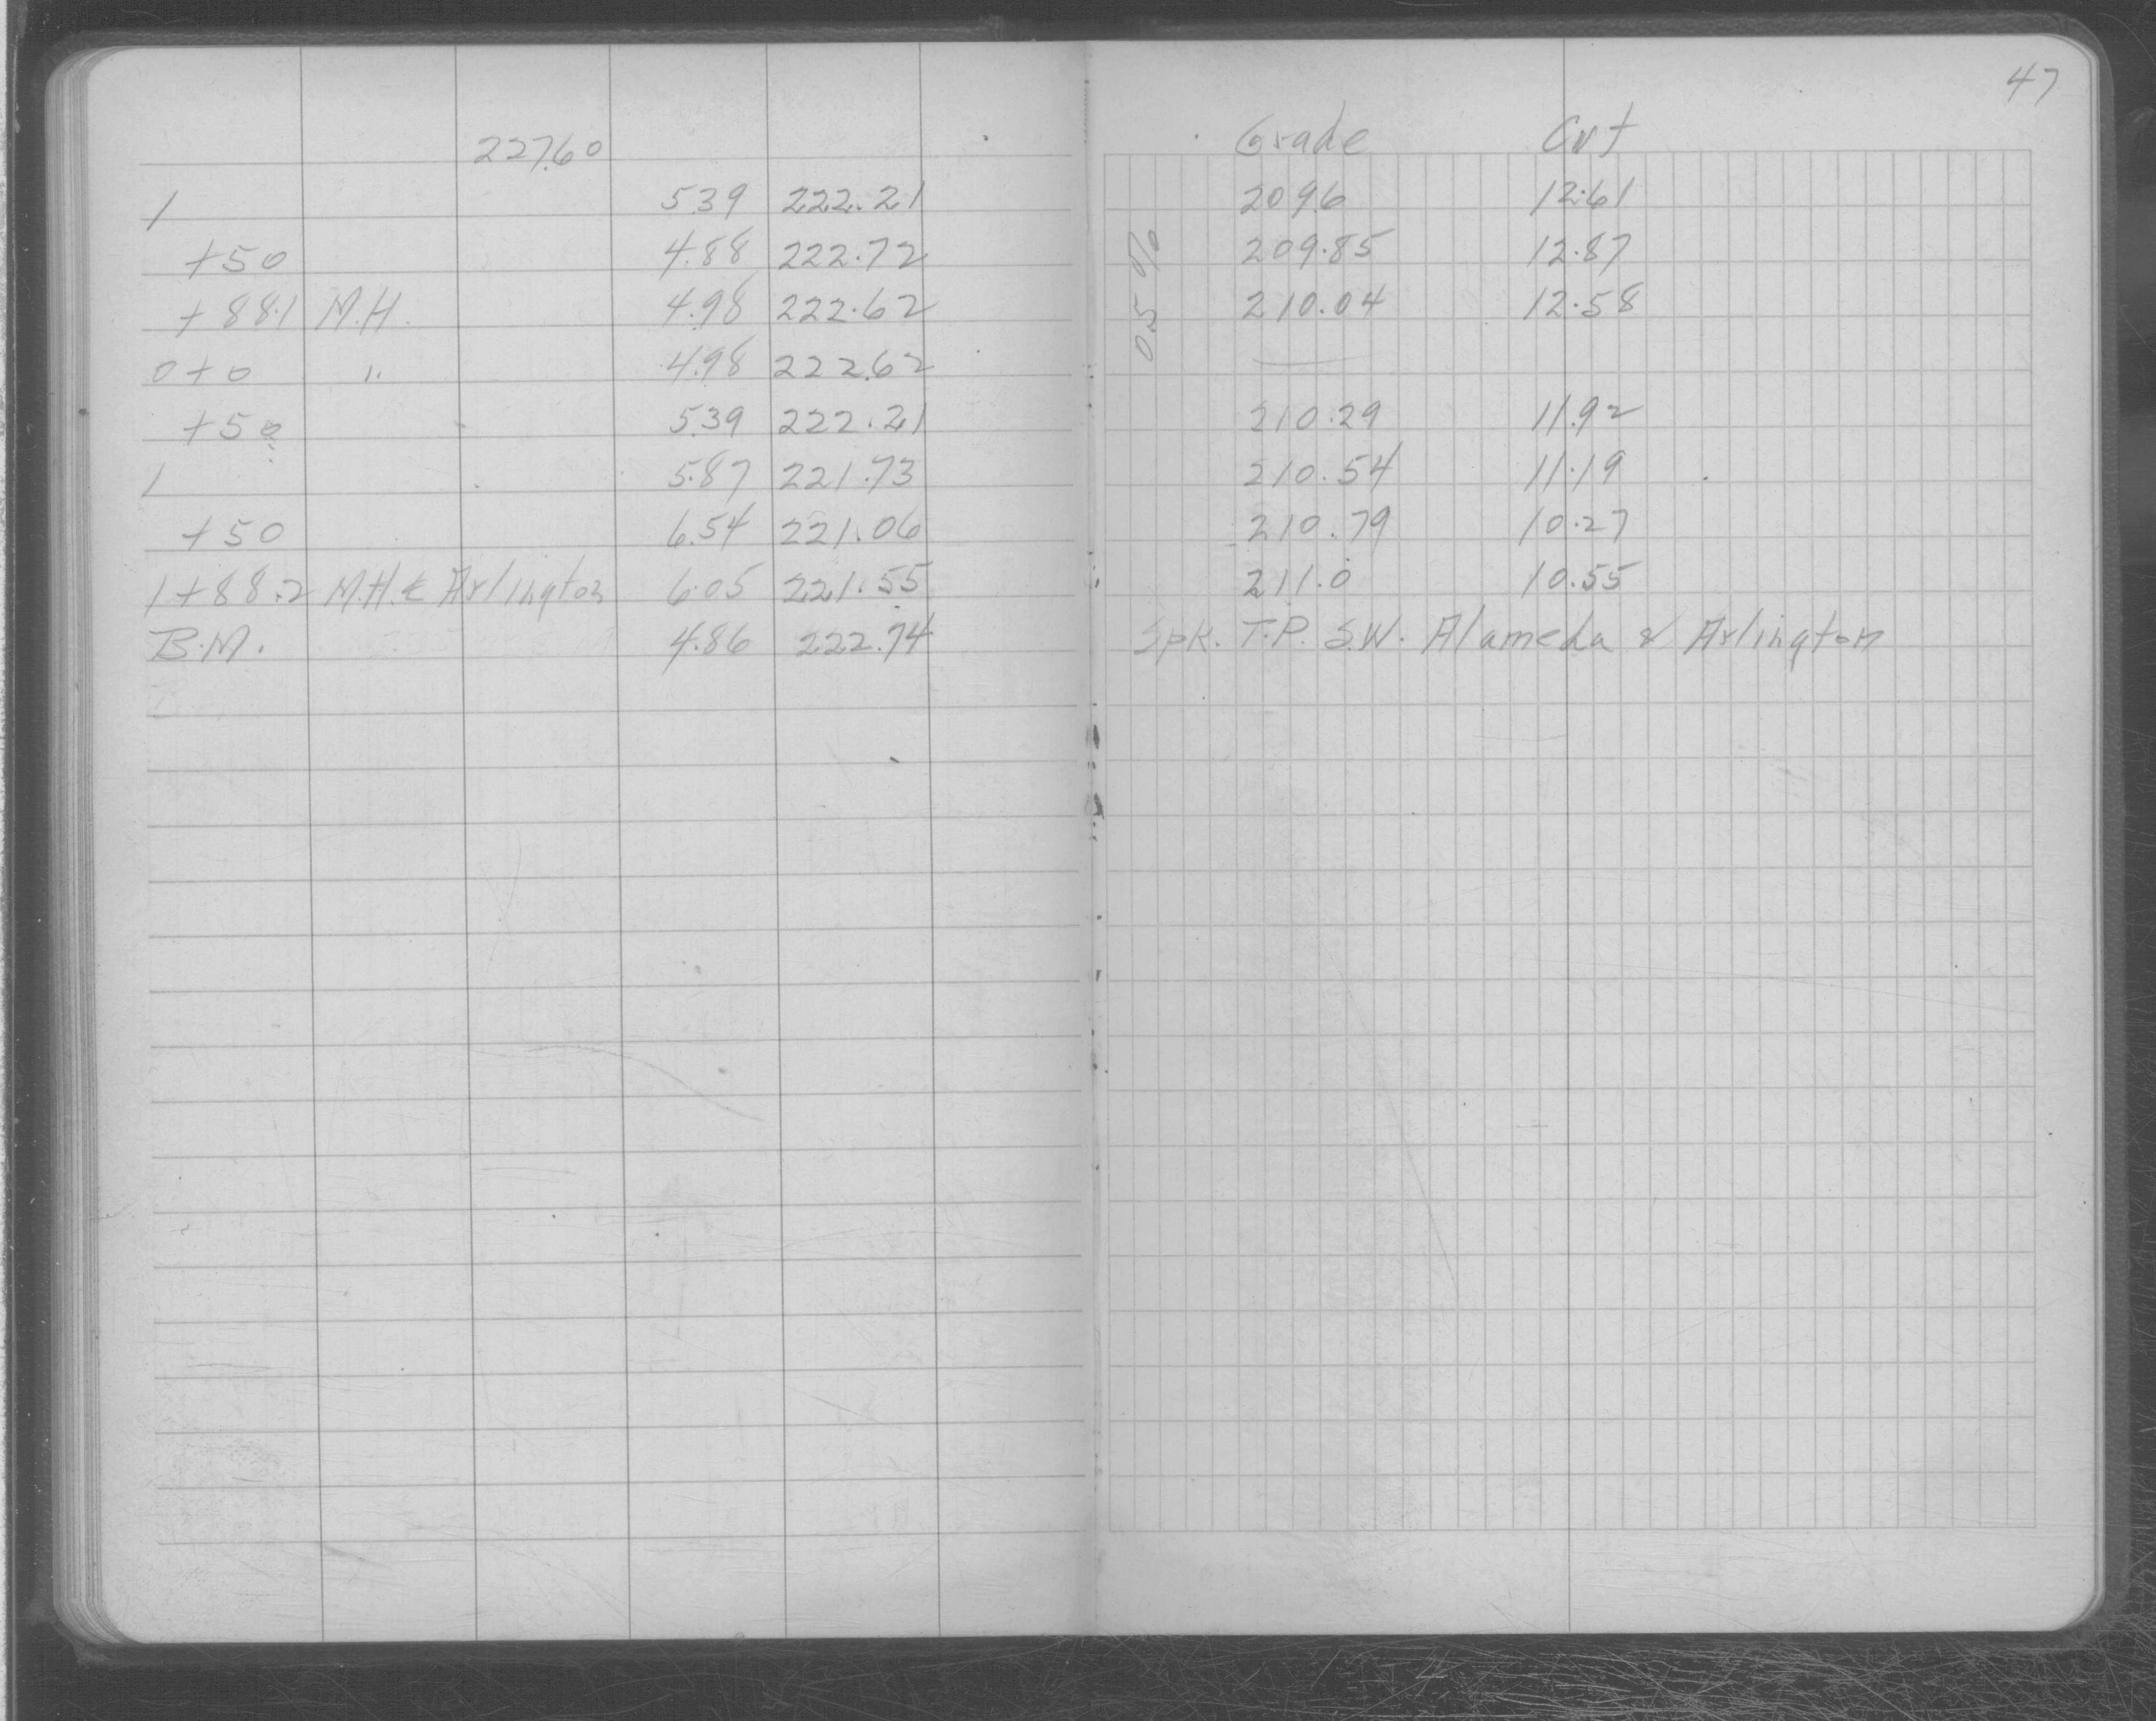 47
227.60 Grade Cut
1 5.39 222.21 209.6 12.61
+50 4.88 222.72 209.85 12.87
+88.1 M.H. 4.98 222.62 210.04 12.58
0+0 " 4.98 222.62 —
0.5 %
+50 5.39 222.21 210.29 11.92
1 5.87 221.73 210.54 11.19
+50 6.54 221.06 210.79 10.27
1+88.2 M.H. ℄ Arlington 6.05 221.55 211.0 10.55
B.M. 4.86 222.74 Spk. T.P. S.W. Alameda & Arlington